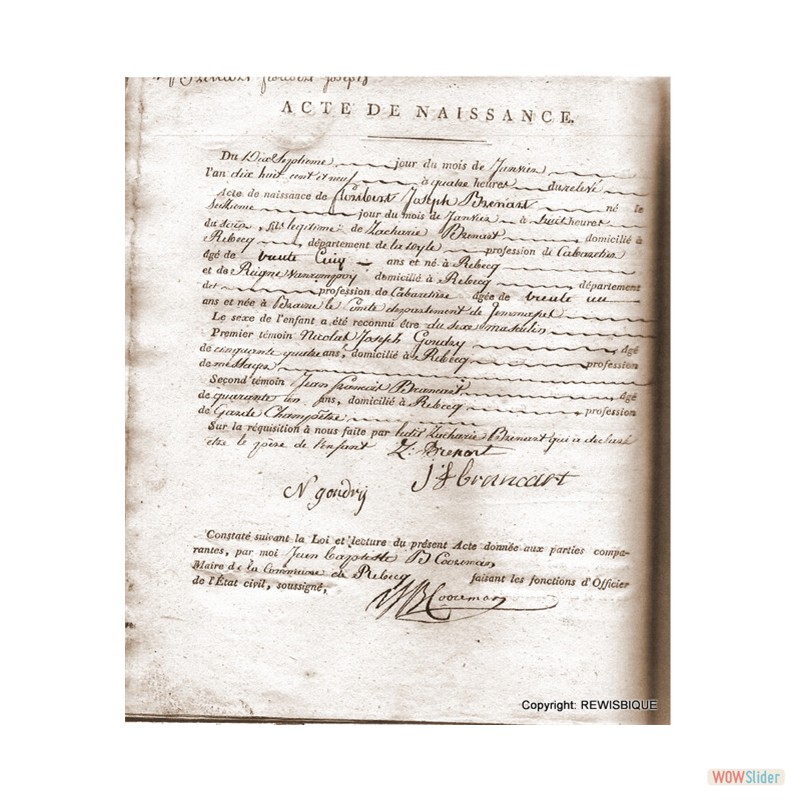 Brenart Floribert Joseph
ACTE DE NAISSANCE.
Du Dix Septieme jour du mois de Janvier
l'an dix huit cent et neuf à quatre heures du relevé
Acte de naissance de Floribert Joseph Brenart né le
Seizieme jour du mois de Janvier à huit heures
du Soir, fils legitime de Zacharie Brenart domicilié à
Rebecq, département de la Dyle profession de Cabaretier
âgé de trente Cinq ans et né à Rebecq
et de domicilié à Rebecq, département
det profession de Cabaretiere âgée de trente un
ans et née à Braine le Comte departement de Jemmapes
Le sexe de l'enfant a été reconnu être du Sexe masculin
Premier témoin Nicolas Joseph Goudry, âgé
de cinquante quatre ans, domicilié à Rebecq, profession
de messager
Second témoin Jean francois Brancart, âgé
de quarante un ans, domicilié à Rebecq, profession
de Garde Champêtre
Sur la réquisition à nous faite par ledit Zacharie Brenart qui a declaré
etre le père de l'enfant Z: Brenart
J f brancart
N goudry
Constaté suivant la Loi et lecture du présent Acte donnée aux parties compa-
rantes, par moi Jean baptiste B Cooreman
Maire de la Commune de Rebecq faisant les fonctions d'Officier
de l'État civil, soussigné,
JB Cooreman
Copyright: REWISBIQUE
WOWSlider